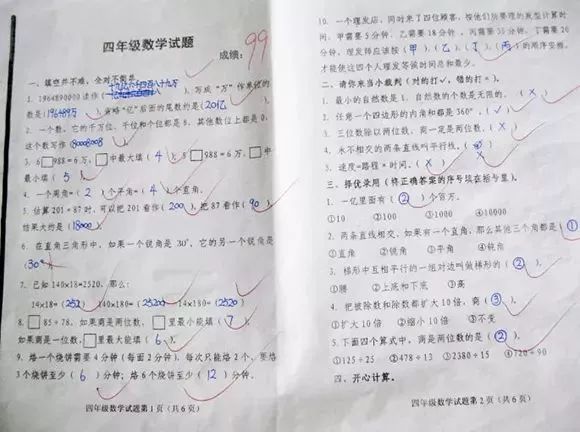 四年级数学试题
成绩：99
一、填空并不难，全对不简单。
1. 1964890000读作（十九亿六千四百八十九万），写成“万”作单位的
数是（196489万），省略“亿”后面的尾数约是（20亿）。
2. 一个数，它的千万位、千位和个位都是8，其他数位上都是0，
这个数写作（80008008）
3. 6□988≈6万，□中最大填（4），5□988≈6万，□中
最小填（5）
4. 一个周角=（2）个平角=（4）个直角。
5. 估算201×87时，可以把201看作（200），把87看作（90），
结果大约是（18000）。
6. 在直角三角形中，如果一个锐角是30°，它的另一个锐角是
7. 已知140×18=2520，那么：
14×18=（252） 140×180=（25200） 14×180=（2520）
8. □85÷78，如果商是两位数，□里最小能填（7），
如果商是一位数，□里最大能填（6）。
9. 烙一个烧饼需要4分钟（每面2分钟），每次只能烙2个，要烙
3个烧饼至少（6）分钟；烙6个烧饼至少（12）分钟。
四年级数学试题第1页（共6页）
10. 一个理发店，同时来了四位顾客，按他们所要理的发型计算时
间，甲需要5分钟，乙需要18分钟，丙需要30分钟，丁需要20
分钟，理发师应该按（甲）、（乙）、（丁）、（丙）的顺序安排，
才能使这四个人理发等候时间总和最少。
二、请你来当小裁判（对的打✓，错的打×）。
1. 最小的自然数是1，自然数的个数是无限的。（×）
2. 任意一个四边形的内角和都是360°。（✓）
3. 三位数除以两位数，商一定是两位数。（×）
4. 永不相交的两条直线叫平行线。
5. 速度=路程×时间。（×）
三、择优录用（将正确答案的序号填在括号里）。
1. 一亿里面有（②）个百万。
①10 ②100 ③1000 ④10000
2. 两条直线相交，如果有一个直角，那么其他三个角都是（①）
①直角 ②锐角 ③平角 ④钝角
3. 梯形中互相平行的一组对边叫做梯形的（②）
①腰 ②上底和下底 ③高
4. 把被除数和除数都扩大10倍，商（③）。
①扩大10倍 ②缩小10倍 ③不变
5. 下面四个算式中，商是两位数的是（②）
①125÷25 ②478÷13 ③2380÷15 ④720÷90
四、开心计算。
四年级数学试题第2页（共6页）